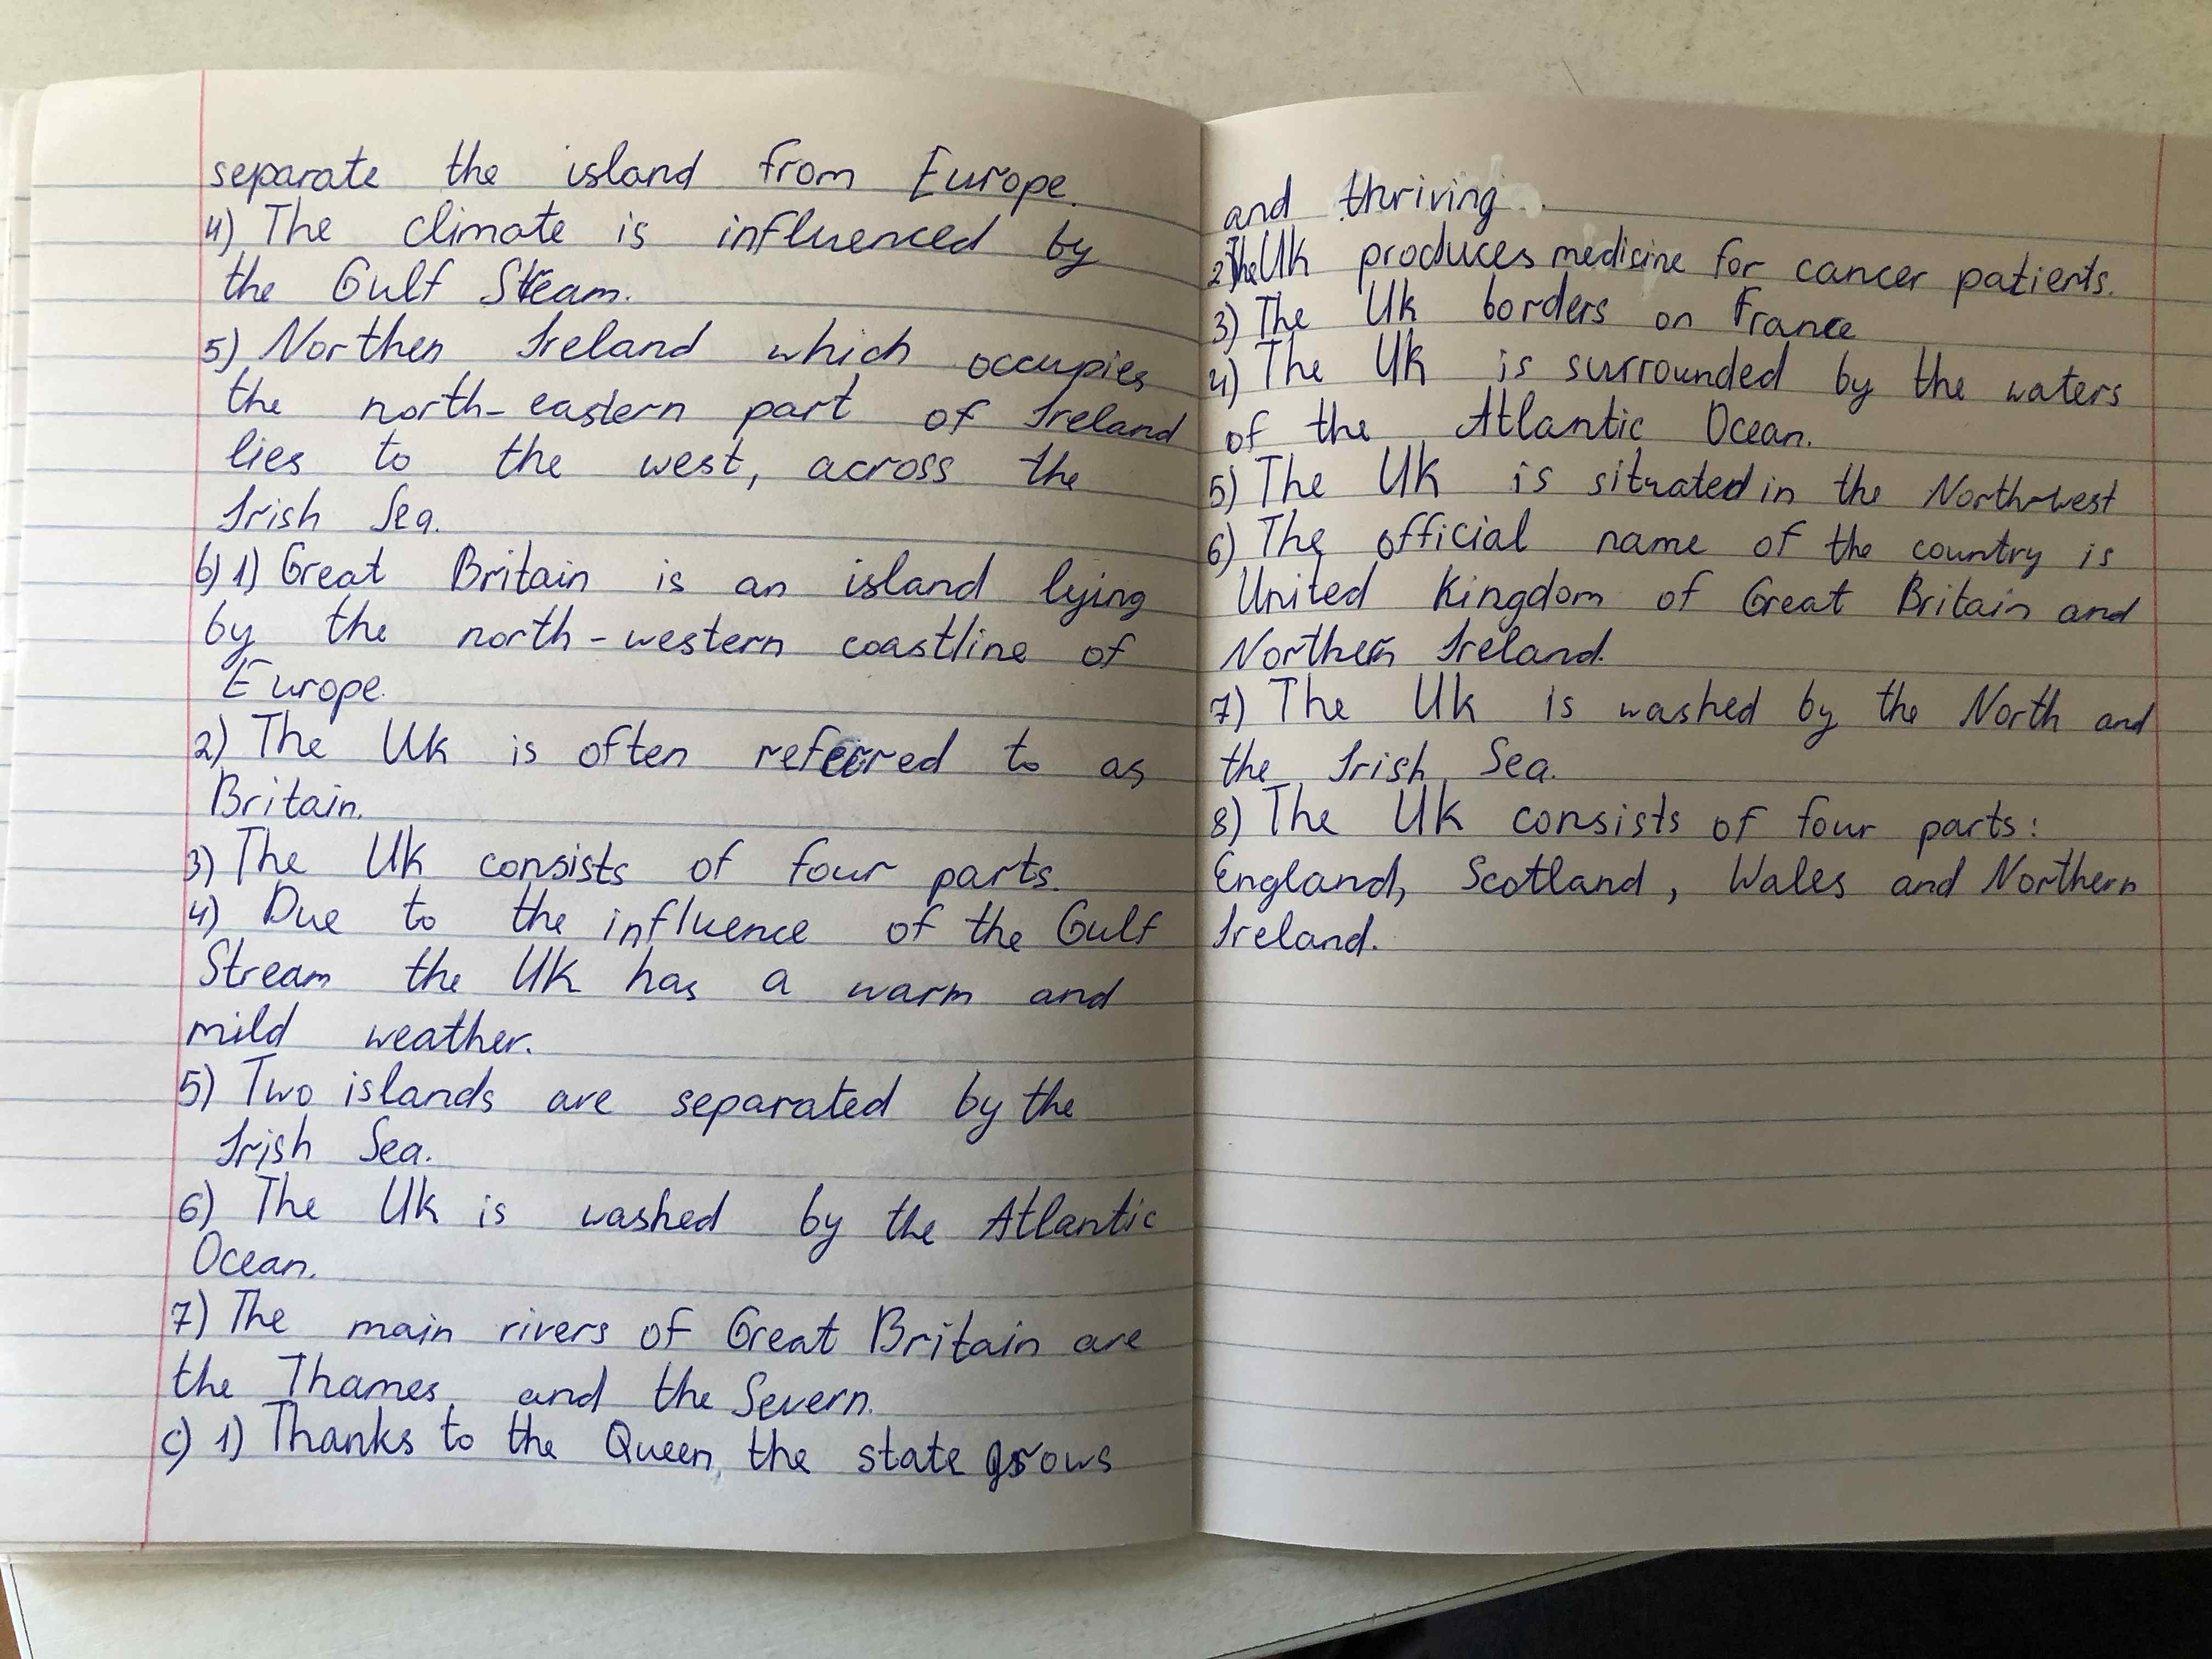 separate the island from Europe.
4) The climate is influenced by
the Gulf Stream.
5) Northen Ireland which occupies
the north-eastern part of Ireland
lies to the west, across the
Irish Sea.
b) 1) Great Britain is an island lying
by the north-western coastline of
Europe.
2) The UK is often referred to as
Britain.
3) The UK consists of four parts.
4) Due to the influence of the Gulf
Stream the UK has a warm and
mild weather.
5) Two islands are separated by the
Irish Sea.
6) The UK is washed by the Atlantic
Ocean.
7) The main rivers of Great Britain are
the Thames and the Severn.
c) 1) Thanks to the Queen, the state grows
and thriving.
2) The UK produces medicine for cancer patients.
3) The UK borders on France
4) The UK is surrounded by the waters
of the Atlantic Ocean.
5) The UK is situated in the North-west
6) The official name of the country is
United Kingdom of Great Britain and
Northern Ireland.
7) The UK is washed by the North and
the Irish Sea.
8) The UK consists of four parts:
England, Scotland, Wales and Northern
Ireland.